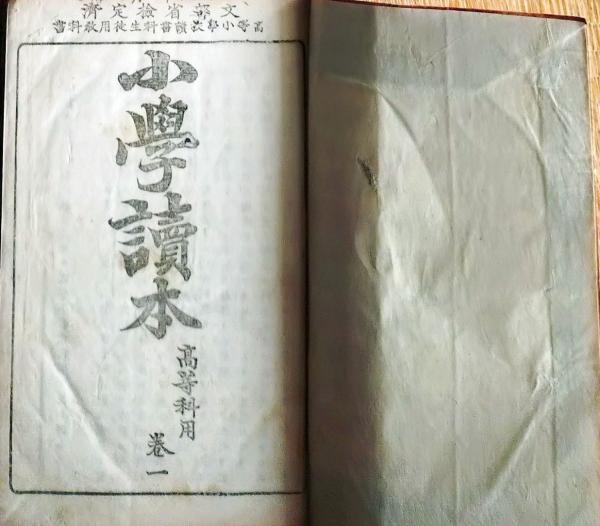 文部省檢定濟
高等小學校讀書科生徒用教科書
小學讀本
高等科用
卷一